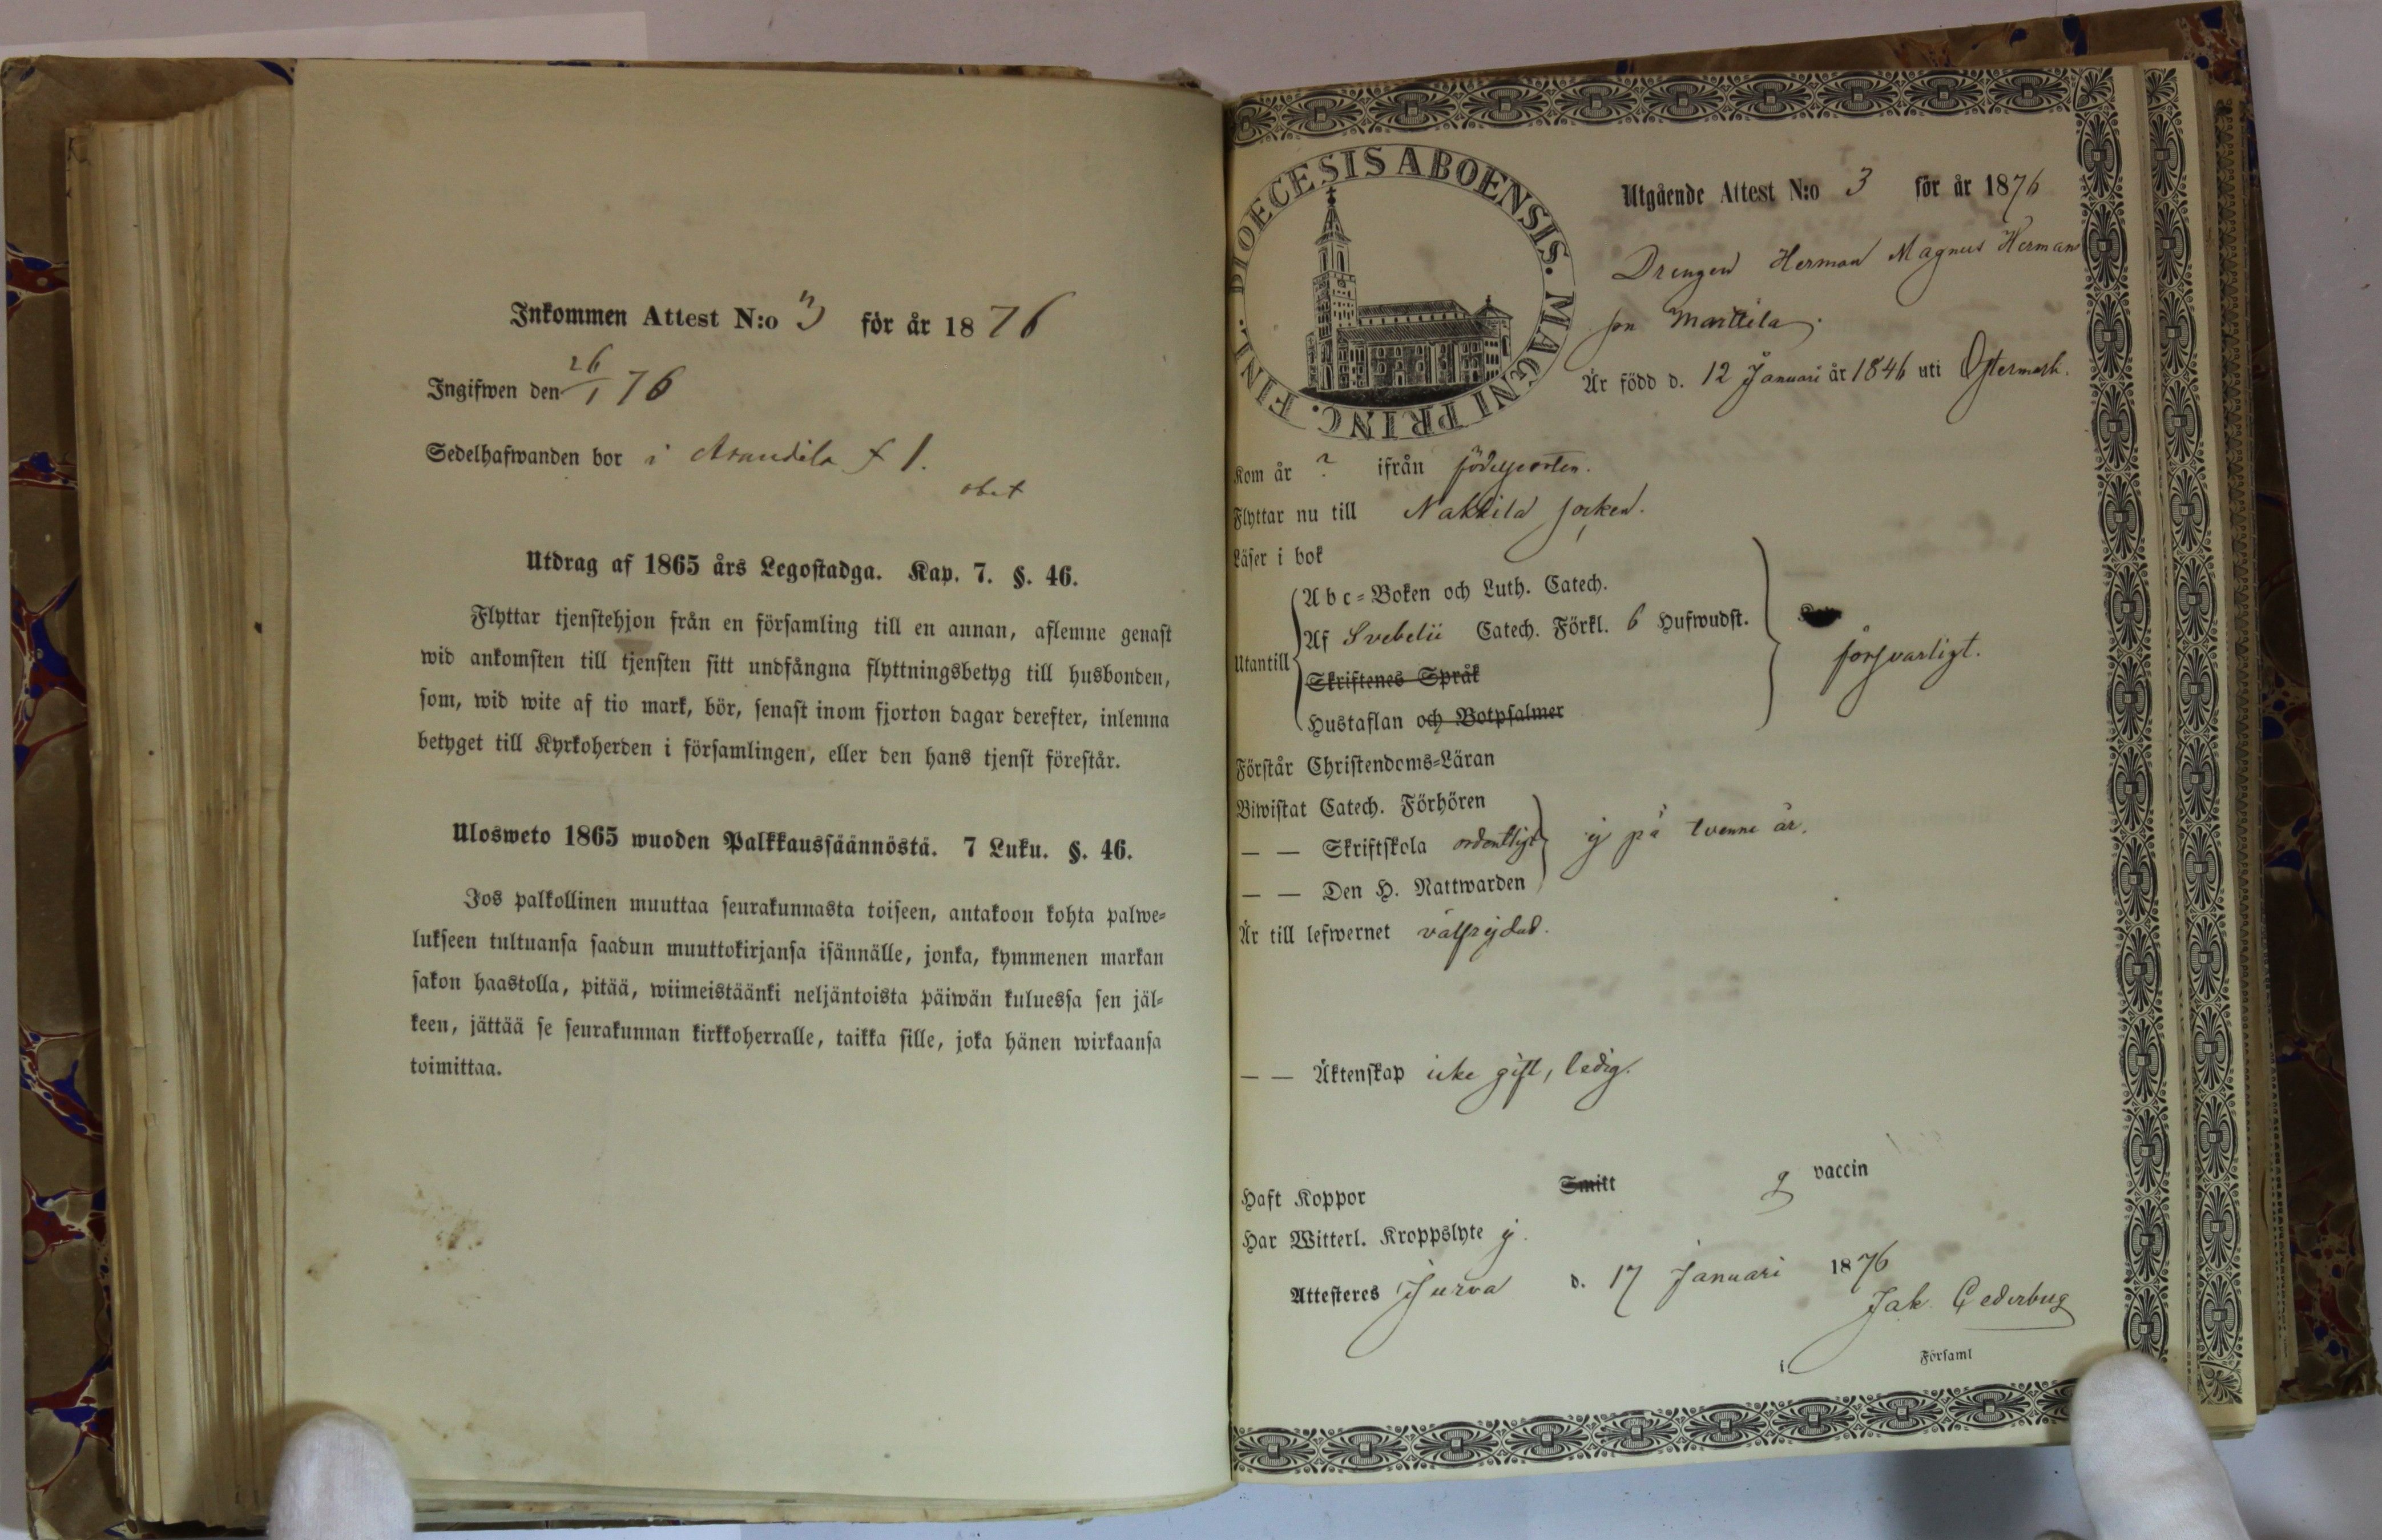 Inkommen Attest N:o 3 för år 1876
Ingifwen den 26/1 76
Sedelhafwanden bor i
Utdrag af 1865 års Legostadga. Kap. 7. §. 46.
Flyttar tjenstehjon från en församling till en annan, aflemne genast
wid ankomsten till tjensten sitt undfångna flyttningsbetyg till husbonden,
som, wid wite af tio mark, bör, senast inom fjorton dagar derefter, inlemna
betyget till Kyrkoherden i församlingen, eller den hans tjenst förestår.
Ulosweto 1865 wuoden Palkkaussäännöstä. 7 Luku. §. 46.
Jos palkollinen muuttaa seurakunnasta toiseen, antakoon kohta palwe=
lukseen tultuansa saadun muuttokirjansa isännälle, jonka, kymmenen markan
sakon haastolla, pitää, wiimeistäänki neljäntoista päiwän kuluessa sen jäl=
keen, jättää se seurakunnan kirkkoherralle, taikka sille, joka hänen wirkaansa
toimittaa.
DIOECESIS ABOENSIS. MAGNI PRINC. FINL.
Utgående Attest N:o 3 för år 1876
Drengen Herman Magnus Hermans
son Marttila.
Är född d. 12 Januari år 1846 uti Östermark.
Kom år ? ifrån födelseorten.
Flyttar nu till Nakkila socken.
Läser i bok
Utantill
Abc=Boken och Luth. Catech.
Af Svebelii Catech. Förkl. 6 Hufwudst.
Skriftenes Språk
Hustaflan och Botpsalmer
försvarligt.
Förstår Christendoms=Läran
Biwistat Catech. Förhören
— — Skriftskola ordentligt ej på tvenne år.
— — Den H. Nattwarden
Är till lefwernet välfrejdad.
— — Äktenskap icke gift, ledig.
Haft Koppor Smitt vaccin
Har Witterl. Kroppslyte ej.
Attesteres Jurva d. 17 Januari 1876
Jak. Cederberg
i Församl